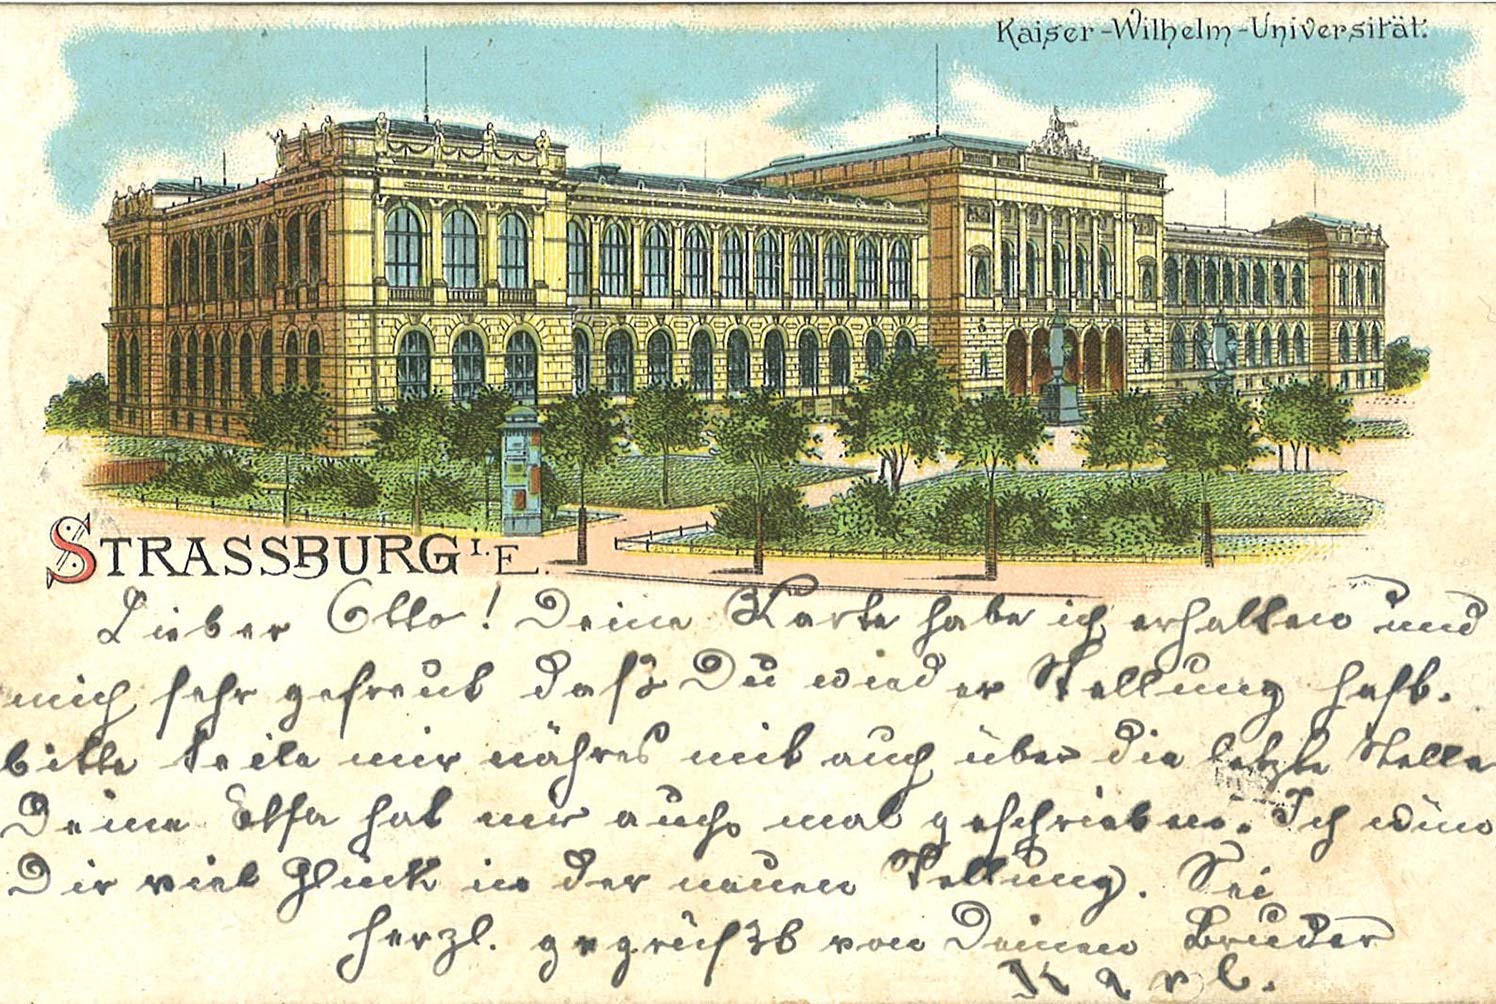 Kaiser-Wilhelm-Universität.
STRASSBURG I. E.
Lieber Otto! Deine Karte habe ich erhalten und
mich sehr gefreut daß Du wieder Stellung hast.
bitte teile mir nähres mit auch über die letzte Stelle
Deine Elsa hat mir auch mal geschrieben. Ich wüns
Dir viel Glück in der neuen Stellung. Sei
herzl. gegrüßt von Deinem Bruder
Karl.